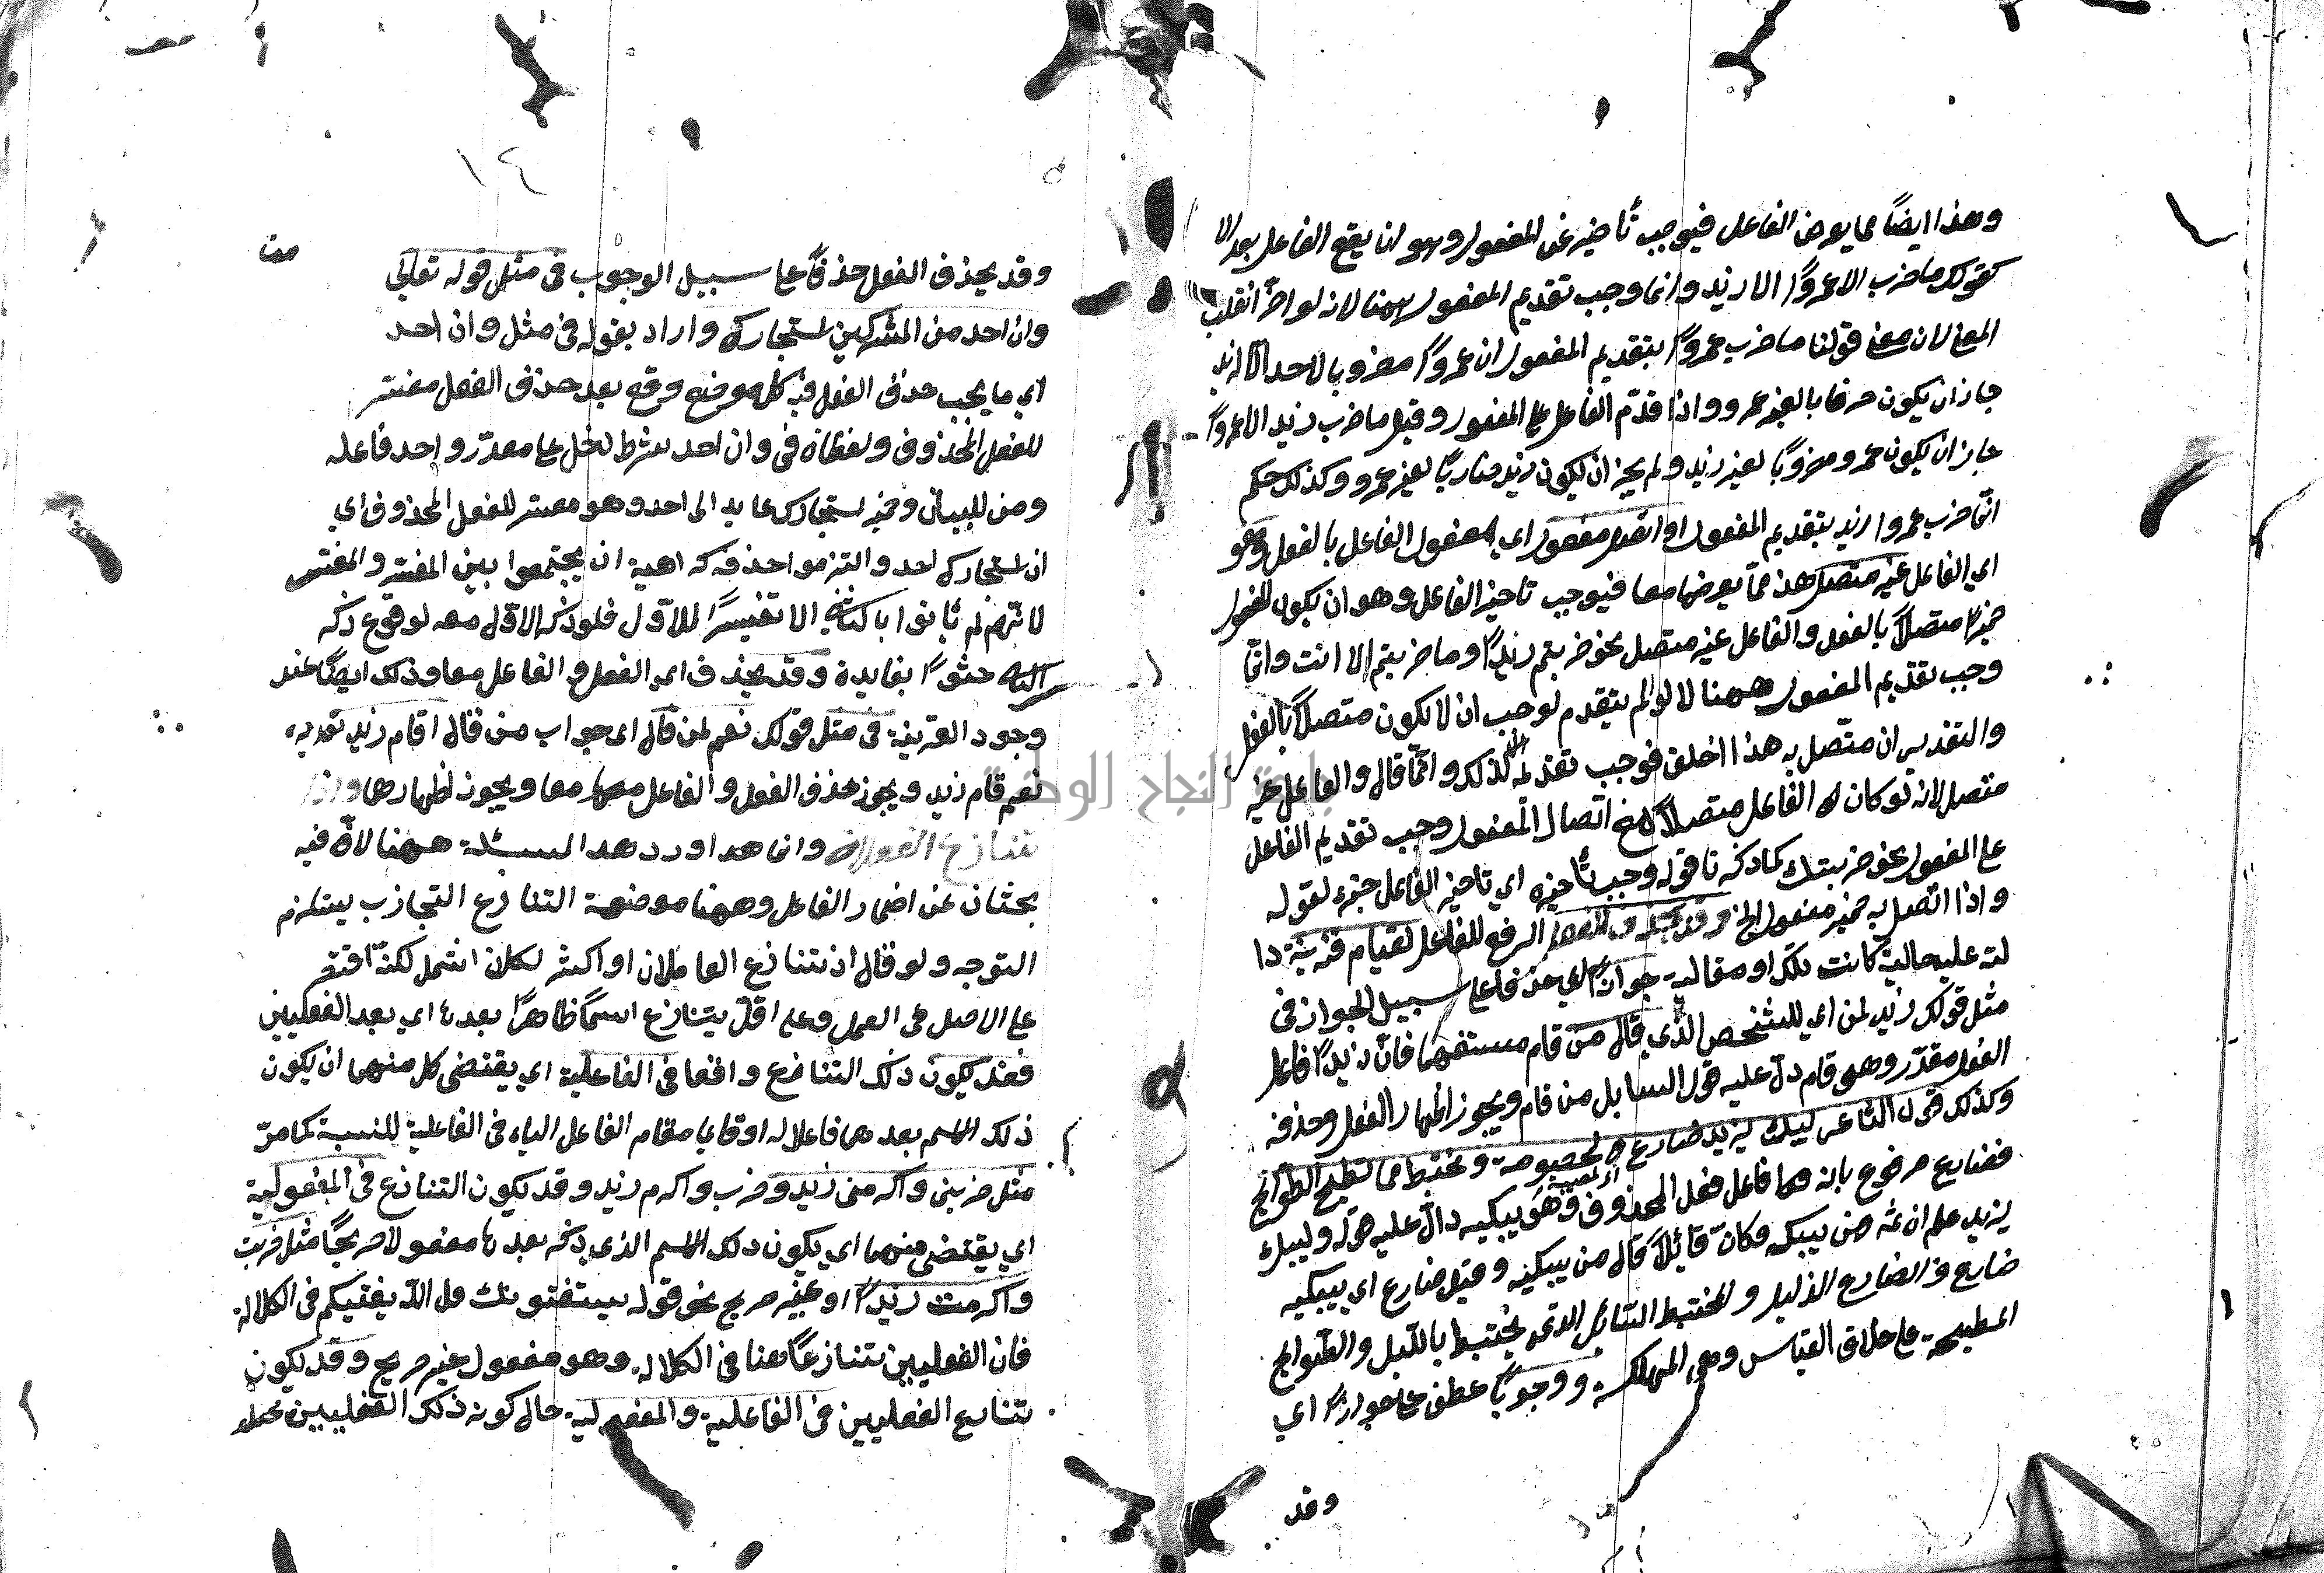 وهذا ايضاً مما يعرض الفاعل فيوجب تأخيره عن المفعول وهو ان يقع الفاعل بعد الا
كقولك ما ضرب الا عمروًا الا زيد وانما وجب تقديم المفعول ههنا لانه لو اخّر انقلب
المعنى لان معنى قولنا ما ضرب عمروًا بتقديم المفعول ان عمروًا مضروبا لاحد الا لزيد
جاز ان يكون ضربا بالغير عمرو واذا قدّم الفاعل على المفعول وقيل ما ضرب زيد الا عمروًا
جاز ان يكون عمرو مضروبًا لغير زيد ولم يجز ان يكون زيد ضاربًا لغير عمرو وكذلك حكم
انّما ضرب عمروا زيد بتقديم المفعول او اتصل مفعوله اي مفعول الفاعل بالفعل وهو
اي الفاعل غير متصل هذ ممّا يعرضها معا فيوجب تاخير الفاعل وهو ان يكون المفعول
ضميرًا متصلاً بالفعل والفاعل غير متصل نحو ضربتم زيدًا وما ضربتم الا انت وانّما
وجب تقديم المفعول ههنا لا لو لم يتقدم لوجب ان لا يكون متصلاً بالفعل
والتقدير ان متّصل به هذا اخلف فوجب تقديمه لذلك وانّما قال والفاعل غير
متصل لانه لو كان الفاعل متصلاً مع اتّصال المفعول وجب تقديم الفاعل
على المفعول نحو ضربتك كما ذكرنا قوله وجب تأخيره اي تاخير الفاعل خبر لقوله
واذا اتّصل به ضمير مفعول الخ وقد يحذف الفعل الرفع للفاعل لقيام قرينة دا
لة عليه حالية كانت تلك او مقالية جوازًا اي حذفا على سبيل الجواز فى
مثل قولك زيد لمن اي للشخص الذي قال من قام مستفهما فانّ زيدًا فاعل
الفعل مقدّر وهو قام دلّ عليه قول السايل من قام ويجوز اظهار الفعل وحذفه
وكذلك قول الشاعر ليبك يزيد ضارع لخصومة ومختبط مما تطيح الطوائح
فضارع مرفوع بانه فاعل فعل المحذوف وهو يبكيه دالّ عليه قوله وليبك
يزيد علم ان ثمه من يبكيه فكانّ قائلاً قال من يبكيه وقيل ضارع اي يبكيه
ضارع والضارع الذليل والمختبط السّائل الذى يختبط بالليل والطّوائح
المطيحة على خلاق القياس وهى المهلكة ووجوبًا عطف على جوازًا اي
وقد
١٤
وقد يحذف الفعل حذفًا على سبيل الوجوب فى مثل قوله تعالى
وان احد من المشركين استجارك واراد بقوله فى مثل وان احد
اي ما يجب حذف الفعل فى كل موضع وقع بعد حذف الفعل مفسّر
للفعل المحذوف ولفظة فى وان احد شرط دخل على مقدّر واحد فاعله
ومن للبيان وضمير استجارك عايد الى احد وهو مفسر للفعل المحذوف اي
ان استجارك احد والتزموا حذفه كراهية ان يجتمعوا بين المفسّر والمفسّر
لانّهم لم يأتوا بالثاني الا تفسيرًا للاوّل فلو ذكر الاوّل معه لوقوع ذكر
الثانى حشوًا بفايدة وقد يحذف اي الفعل والفاعل معا وذلك ايضًا عند
وجود القرينة فى مثل قولك نعم لمن قال اى جواب من قال اقام زيد تقديره
نعم قام زيد ويجوز حذف الفعل والفاعل معا ويجوز اظهارهما واذا
تنازع الفعلان وانما هذا اورد هذا المسئلة ههنا لانّ فيه
بحثان عن اضمار الفاعل وههنا موضعه التنازع التجاذب يستلزم
التوجه ولو قال اذ يتنازع العاملان او اكثر لكان اشمل لكنّ اقتصر
على الاصل فى العمل وعلى اقلّ يتنازع اسمًا ظاهرًا بعدها اي بعد الفعلين
فقد يكون ذلك التنازع واقعا فى الفاعلية اي يقتضى كل منهما ان يكون
ذلك الاسم بعدهما فاعلا له او قايما مقام الفاعل الباء فى الفاعلية للنسبة كما مرّ
مثل ضربنى واكرمنى زيد وضرب واكرم زيد وقد يكون التنازع فى المفعولية
اي يقتضى منهما اي يكون ذلك الاسم الذي ذكر بعدها مفعولا صريحًا مثل ضربت
واكرمت زيدًا او غير صريح نحو قوله يستفتونك قل الله يفتيكم فى الكلالة
فان الفعلين يتنازعًا هنا فى الكلالة وهو مفعول غير صريح وقد يكون
تنازع الفعلين فى الفاعلية والمفعولية حال كونه ذلك الفعلين